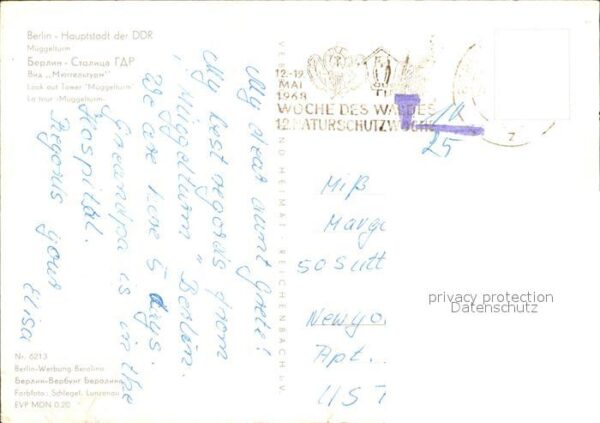 Berlin - Hauptstadt der DDR
Müggelturm
Берлин - Столица ГДР
Вид „Миггельтурм"
Look out Tower "Müggelturm"
La tour «Müggelturm»
12.-19.
MAI
1968
WOCHE DES WALDES
12. NATURSCHUTZWOCHE
25
My dear aunt Grete!
My best regards from
"Müggelturm" Berlin.
We are here 5 days.
Grandpa is in the
Hospital.
Regards your
Elisa
REICHENBACH i. V.
UND HEIMAT
Miß
Marga
50 Sutt
Newyo
Apt.
UST
privacy protection
Datenschutz
Nr. 6213
Berlin-Werbung Berolina
Берлин-Вербунг Беролина
Farbfoto: Schlegel, Lunzenau
EVP MDN 0,20